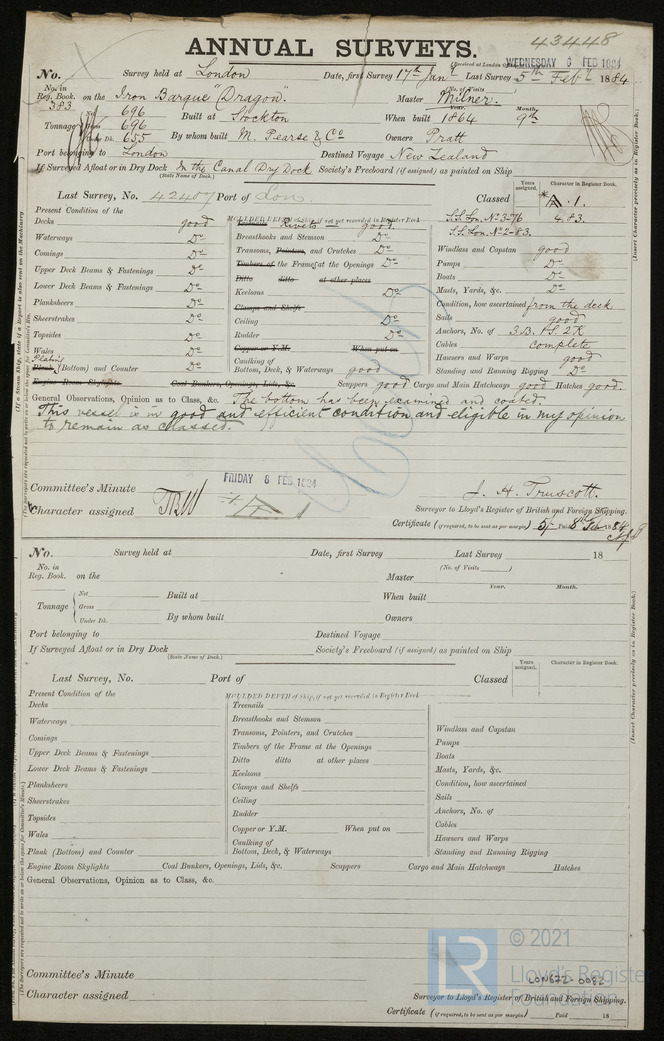 43448
ANNUAL SURVEYS.
(Received at London
WEDNESDAY 6 FEB 1884
No. Survey held at London Date, first Survey 17th Jany Last Survey 5th Feby 1884
No. in Reg. Book. 383 on the Iron Barque "Dragon". Master Milner.
(No. of Visits
Tonnage Net 696
Gross 696
Under Dk. 655
Built at Stockton When built Year. 1864 Month. 9th
By whom built M. Pearse & Co Owners Pratt
Port belonging to London Destined Voyage New Zealand
If Surveyed Afloat or in Dry Dock In the Canal Dry Dock Society's Freeboard (if assigned) as painted on Ship
(State Name of Dock.)
Last Survey, No. 42407 Port of Lon Classed
Years assigned. Character in Register Book.
*A.1.
S.S. Lon. No 3-76 4.83.
S.S. Lon. No 2-83.
Present Condition of the
MOULDED DEPTH of Ship, if not yet recorded in Register Book
Decks good
Waterways Do
Comings Do
Upper Deck Beams & Fastenings Do
Lower Deck Beams & Fastenings Do
Planksheers Do
Sheerstrakes Do
Topsides Do
Wales Do
Plating
Plank (Bottom) and Counter Do
Engine Room Skylights
Rivets good.
Breasthooks and Stemson Do
Transoms, Pointers, and Crutches Do
Timbers of the Frame at the Openings Do
Ditto ditto at other places
Keelsons Do
Clamps and Shelfs
Ceiling Do
Rudder Do
Copper or Y.M. When put on
Caulking of
Bottom, Deck, & Waterways good
Coal Bunkers, Openings, Lids, &c.
Windlass and Capstan good
Pumps Do
Boats Do
Masts, Yards, &c. Do
Condition, how ascertained from the deck
Sails good
Anchors, No. of 3B. 1S. 2K
Cables complete
Hawsers and Warps good
Standing and Running Rigging Do
Scuppers good Cargo and Main Hatchways good Hatches good.
General Observations, Opinion as to Class, &c. The bottom has been examined and coated.
This vessel is in good and efficient condition and eligible in my opinion
to remain as classed.
Committee's Minute FRIDAY 8 FEB 1884
Character assigned
J. H. Truscott.
Surveyor to Lloyd's Register of British and Foreign Shipping.
Certificate (if required, to be sent as per margin) 5/- Paid 8th Feb 1884
No. Survey held at Date, first Survey Last Survey 18
No. in Reg. Book. on the Master
(No. of Visits )
Tonnage Net
Gross
Under Dk.
Built at When built Year. Month.
By whom built Owners
Port belonging to Destined Voyage
If Surveyed Afloat or in Dry Dock Society's Freeboard (if assigned) as painted on Ship
(State Name of Dock.)
Last Survey, No. Port of Classed
Years assigned. Character in Register Book.
Present Condition of the
MOULDED DEPTH of Ship, if not yet recorded in Register Book
Decks
Waterways
Comings
Upper Deck Beams & Fastenings
Lower Deck Beams & Fastenings
Planksheers
Sheerstrakes
Topsides
Wales
Plank (Bottom) and Counter
Treenails
Breasthooks and Stemson
Transoms, Pointers, and Crutches
Timbers of the Frame at the Openings
Ditto ditto at other places
Keelsons
Clamps and Shelfs
Ceiling
Rudder
Copper or Y.M. When put on
Caulking of
Bottom, Deck, & Waterways
Windlass and Capstan
Pumps
Boats
Masts, Yards, &c.
Condition, how ascertained
Sails
Anchors, No. of
Cables
Hawsers and Warps
Standing and Running Rigging
Engine Room Skylights Coal Bunkers, Openings, Lids, &c. Scuppers Cargo and Main Hatchways Hatches
General Observations, Opinion as to Class, &c.
© 2021
LR Lloyd's Register Foundation
LON672-0082
Committee's Minute
Character assigned
Surveyor to Lloyd's Register of British and Foreign Shipping.
Certificate (if required, to be sent as per margin) Paid 18
(Insert Character precisely as in Register Book.)
(Insert Character precisely as in Register Book.)
(If a Steam Ship, state if a Report is also sent on the Machinery